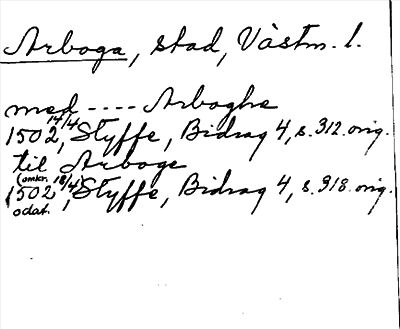 Arboga, stad, Västm. l.
med ---- Arboghe
1502 14/4, Styffe, Bidrag 4, s. 312. orig.
til Arboge
(omkr. 18/4)
1502, Styffe, Bidrag 4, s. 318. orig.
odat.